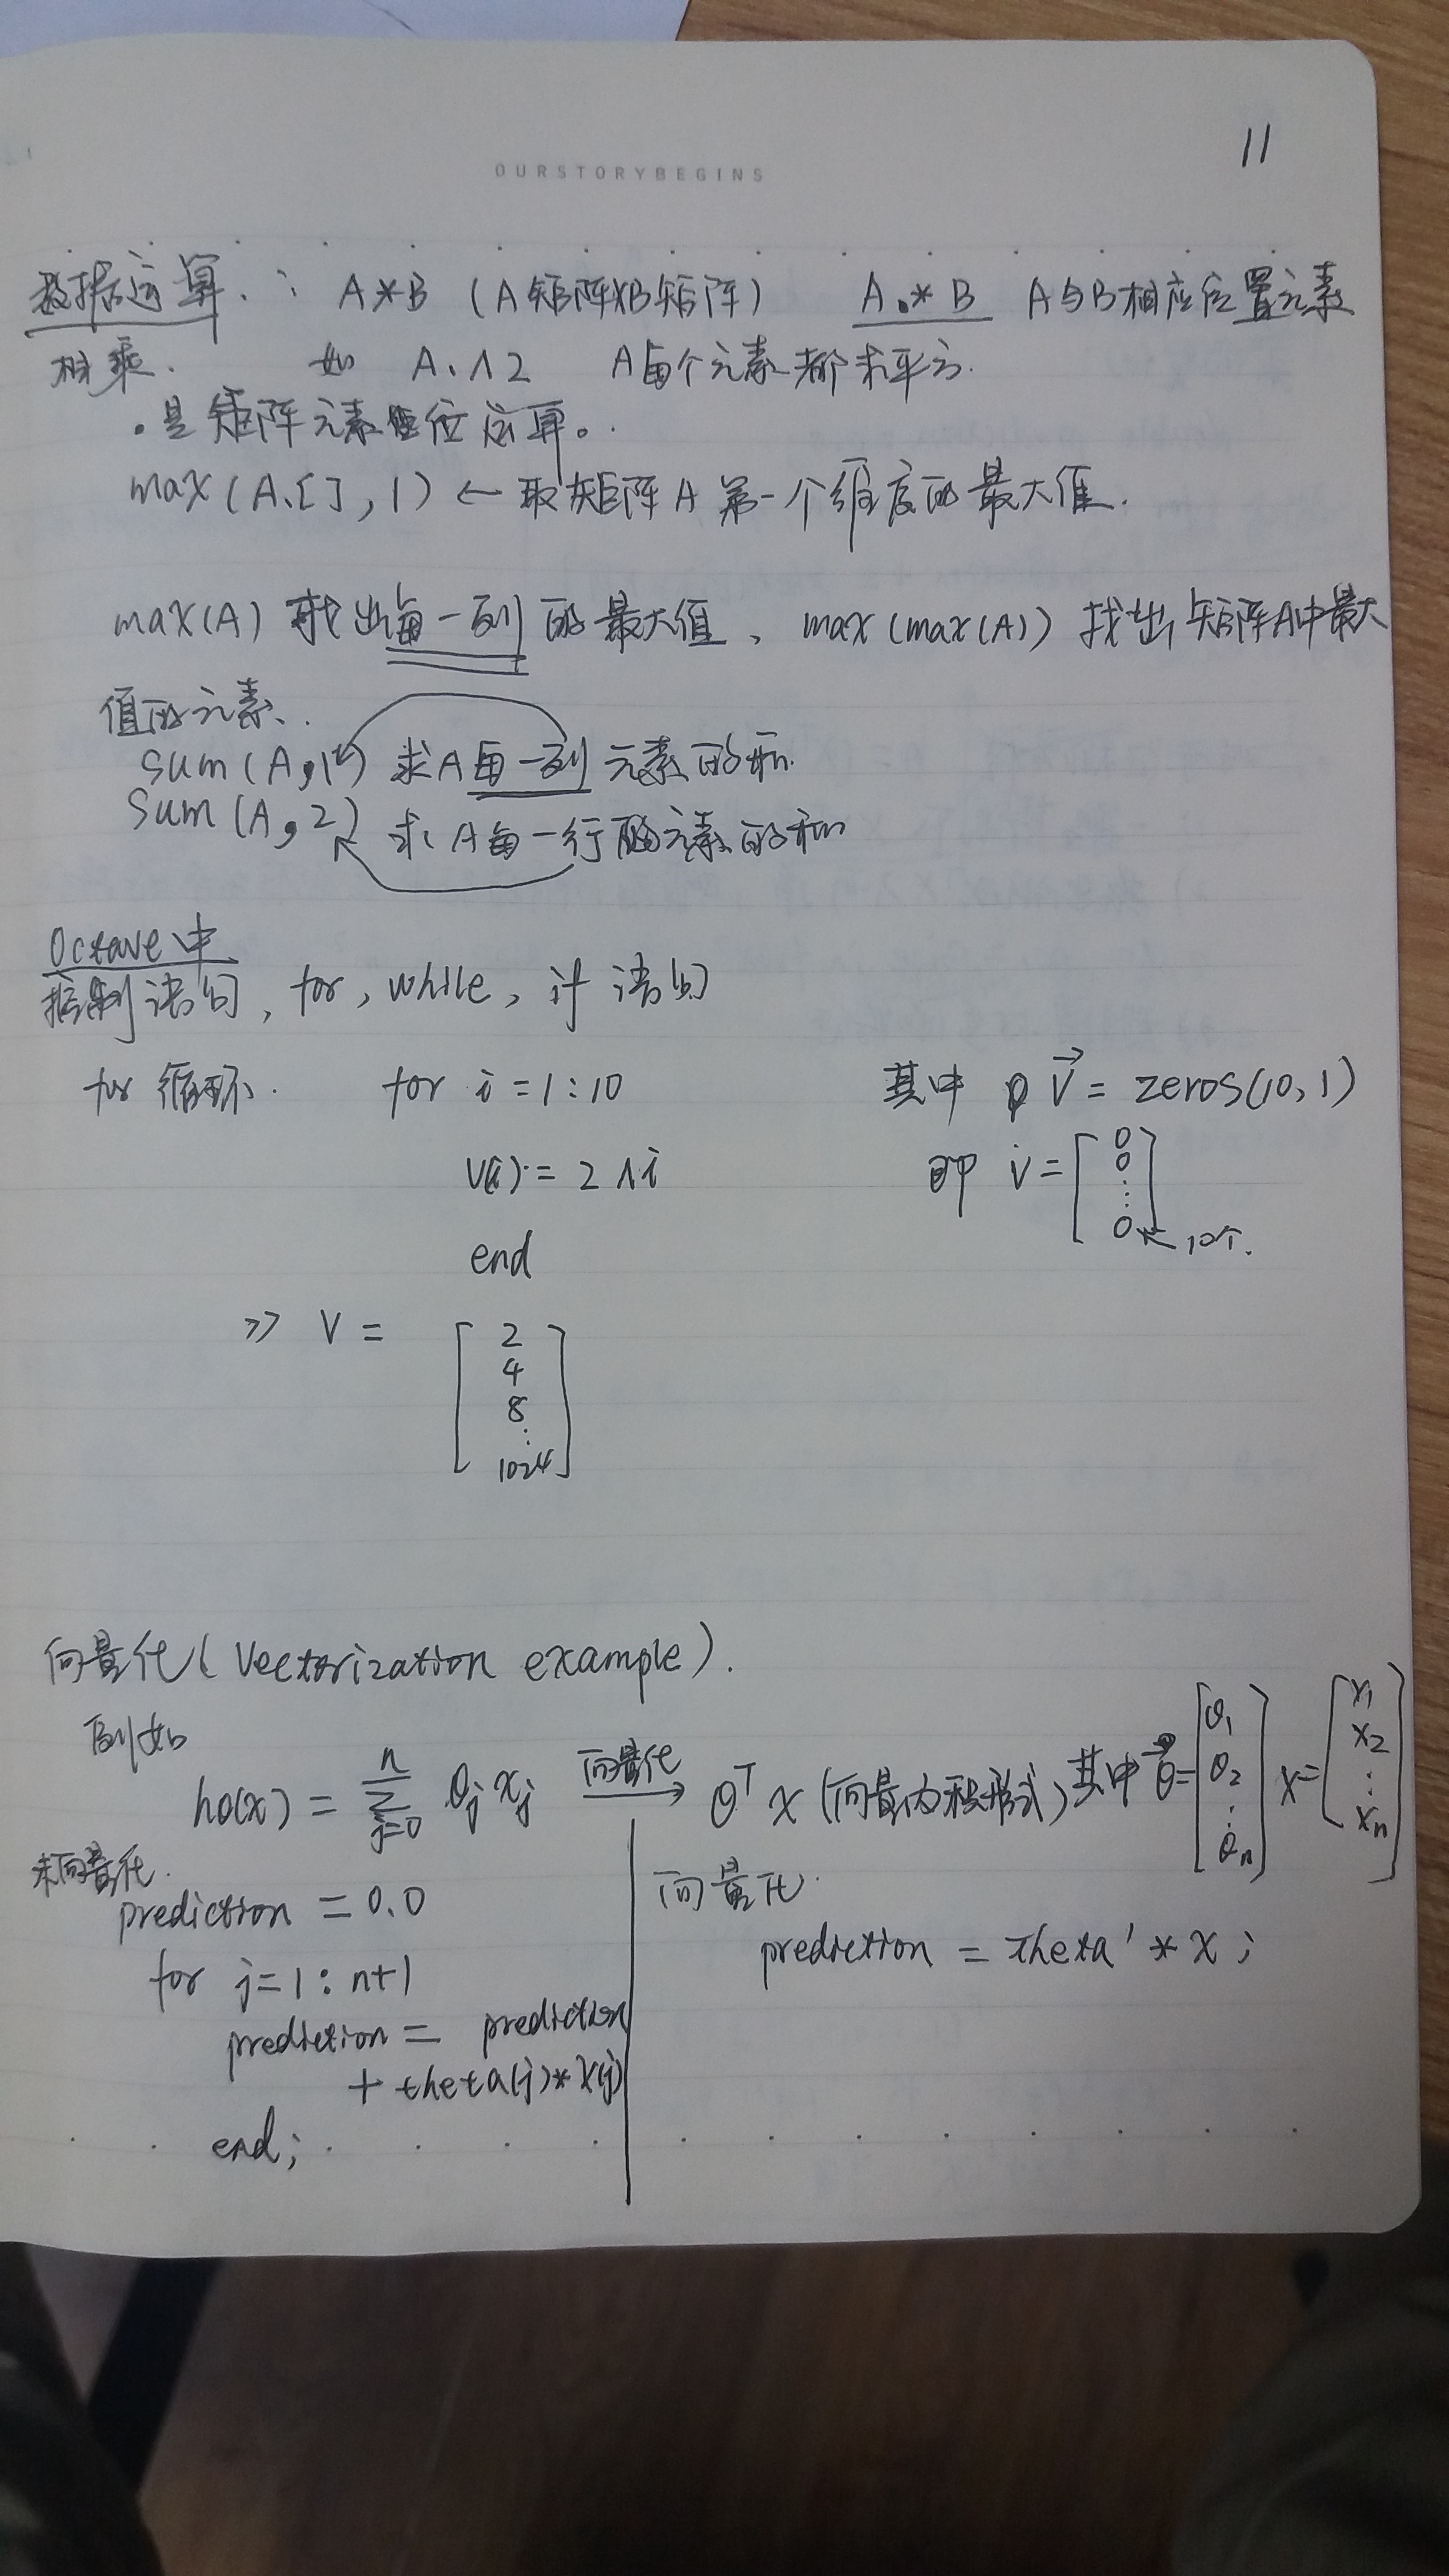 11
OURSTORYBEGINS
数据运算: A*B (A矩阵×B矩阵) A.*B A与B相应位置元素
相乘. 如 A.^2 A每个元素都求平方.
.是矩阵元素位运算。
max(A,[],1) ← 取矩阵A第一个维度的最大值.
max(A) 找出每一列的最大值、max(max(A)) 找出矩阵A中最大
值的元素.
sum(A,1) 求A每一列元素的和.
sum(A,2) 求A每一行元素的和
Octave中
控制语句, for, while, if 语句
for 循环. for i=1:10 其中 v⃗ = zeros(10,1)
v(i) = 2^i 即 v = [0 0 ⋮ 0] ← 10个.
end
>> V = [2 4 8 ⋮ 1024]
向量化(Vectorization example).
例如
hθ(x) = Σ_{j=0}^{n} θj xj 向量化→ θ^T x (向量内积形式) 其中 θ⃗ = [θ1 θ2 ⋮ θn] x = [x1 x2 ⋮ xn]
未向量化.
prediction = 0.0
for j=1:n+1
prediction = prediction
+ theta(j)*x(j)
end;
向量化.
prediction = theta' * x;